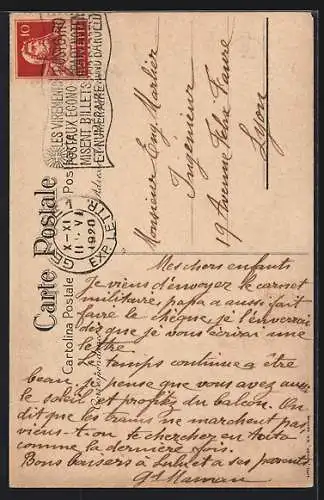 10
LES VIREMENTS
POSTAUX ÉCONO
MISENT BILLETS
ET NUMÉRAIRE
Carte Postale
Cartolina Postale
X-XI
11. V
1920
EXP. LETTR.
Monsieur Eug. Morlier
Ingénieur
19 Avenue Félix Faure
Lyon
Mes chers enfants
Je viens d'envoyer le carnet
militaire, papa a aussi fait
faire le chèque, je l'enverrai
dès que je vous écrirai une
lettre
Le temps continue a être
beau, je pense que vous avez aussi
le soleil et profitez du balcon. On
dit que les trains ne marchent pas,
viens-t-on te chercher en auto
comme la dernière fois.
Bons baisers à Lulu et à ses parents
Gd Maman